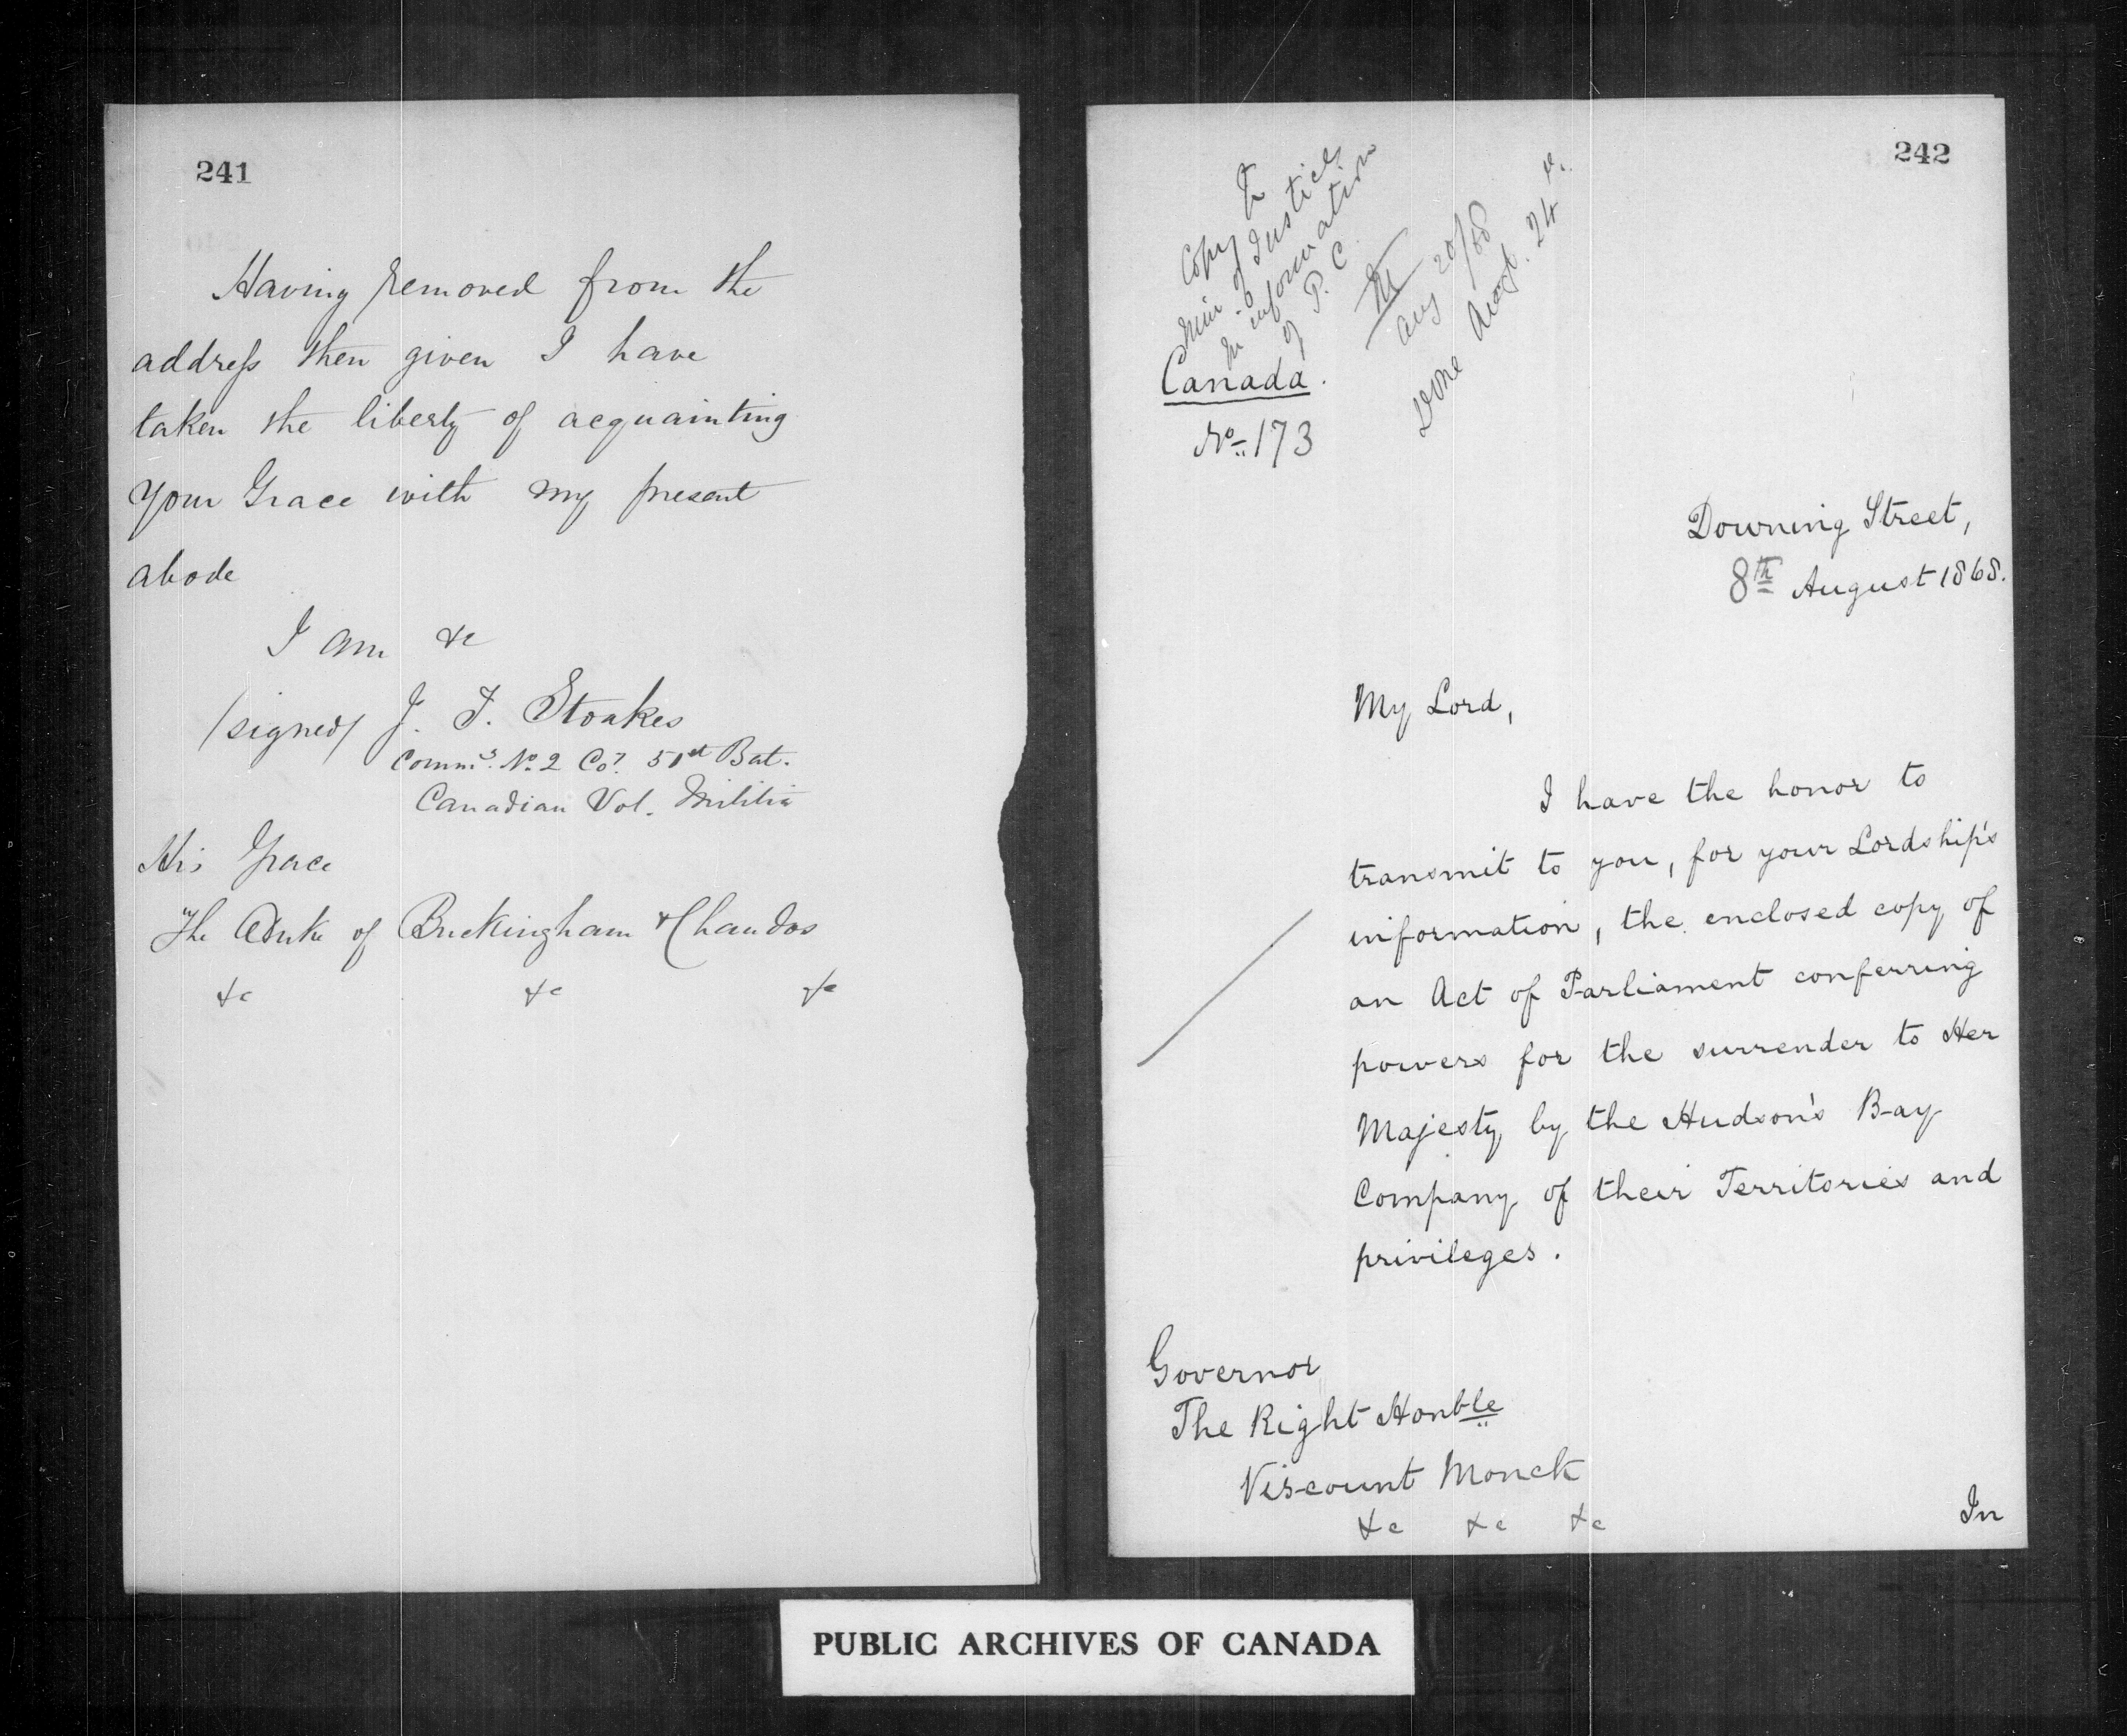 241
Having removed from the
address then given I have
taken the liberty of acquainting
Your Grace with my present
abode
I am &c
/signed/ J. F. Stoakes
Commg. No. 2 Coy. 51st Bat.
Canadian Vol. Militia
His Grace
The Duke of Buckingham & Chandos
&c &c &c
242
Copy to
Min. of Justice
for information
of P. C.
M
Aug 20/68
Done Augt. 24
Canada.
No. 173
Downing Street,
8th August 1868.
My Lord,
I have the honor to
transmit to you, for your Lordship's
information, the enclosed copy of
an Act of Parliament conferring
powers for the surrender to Her
Majesty by the Hudson's Bay
Company of their Territories and
privileges.
Governor
The Right Honble
Viscount Monck
&c &c &c
In
PUBLIC ARCHIVES OF CANADA